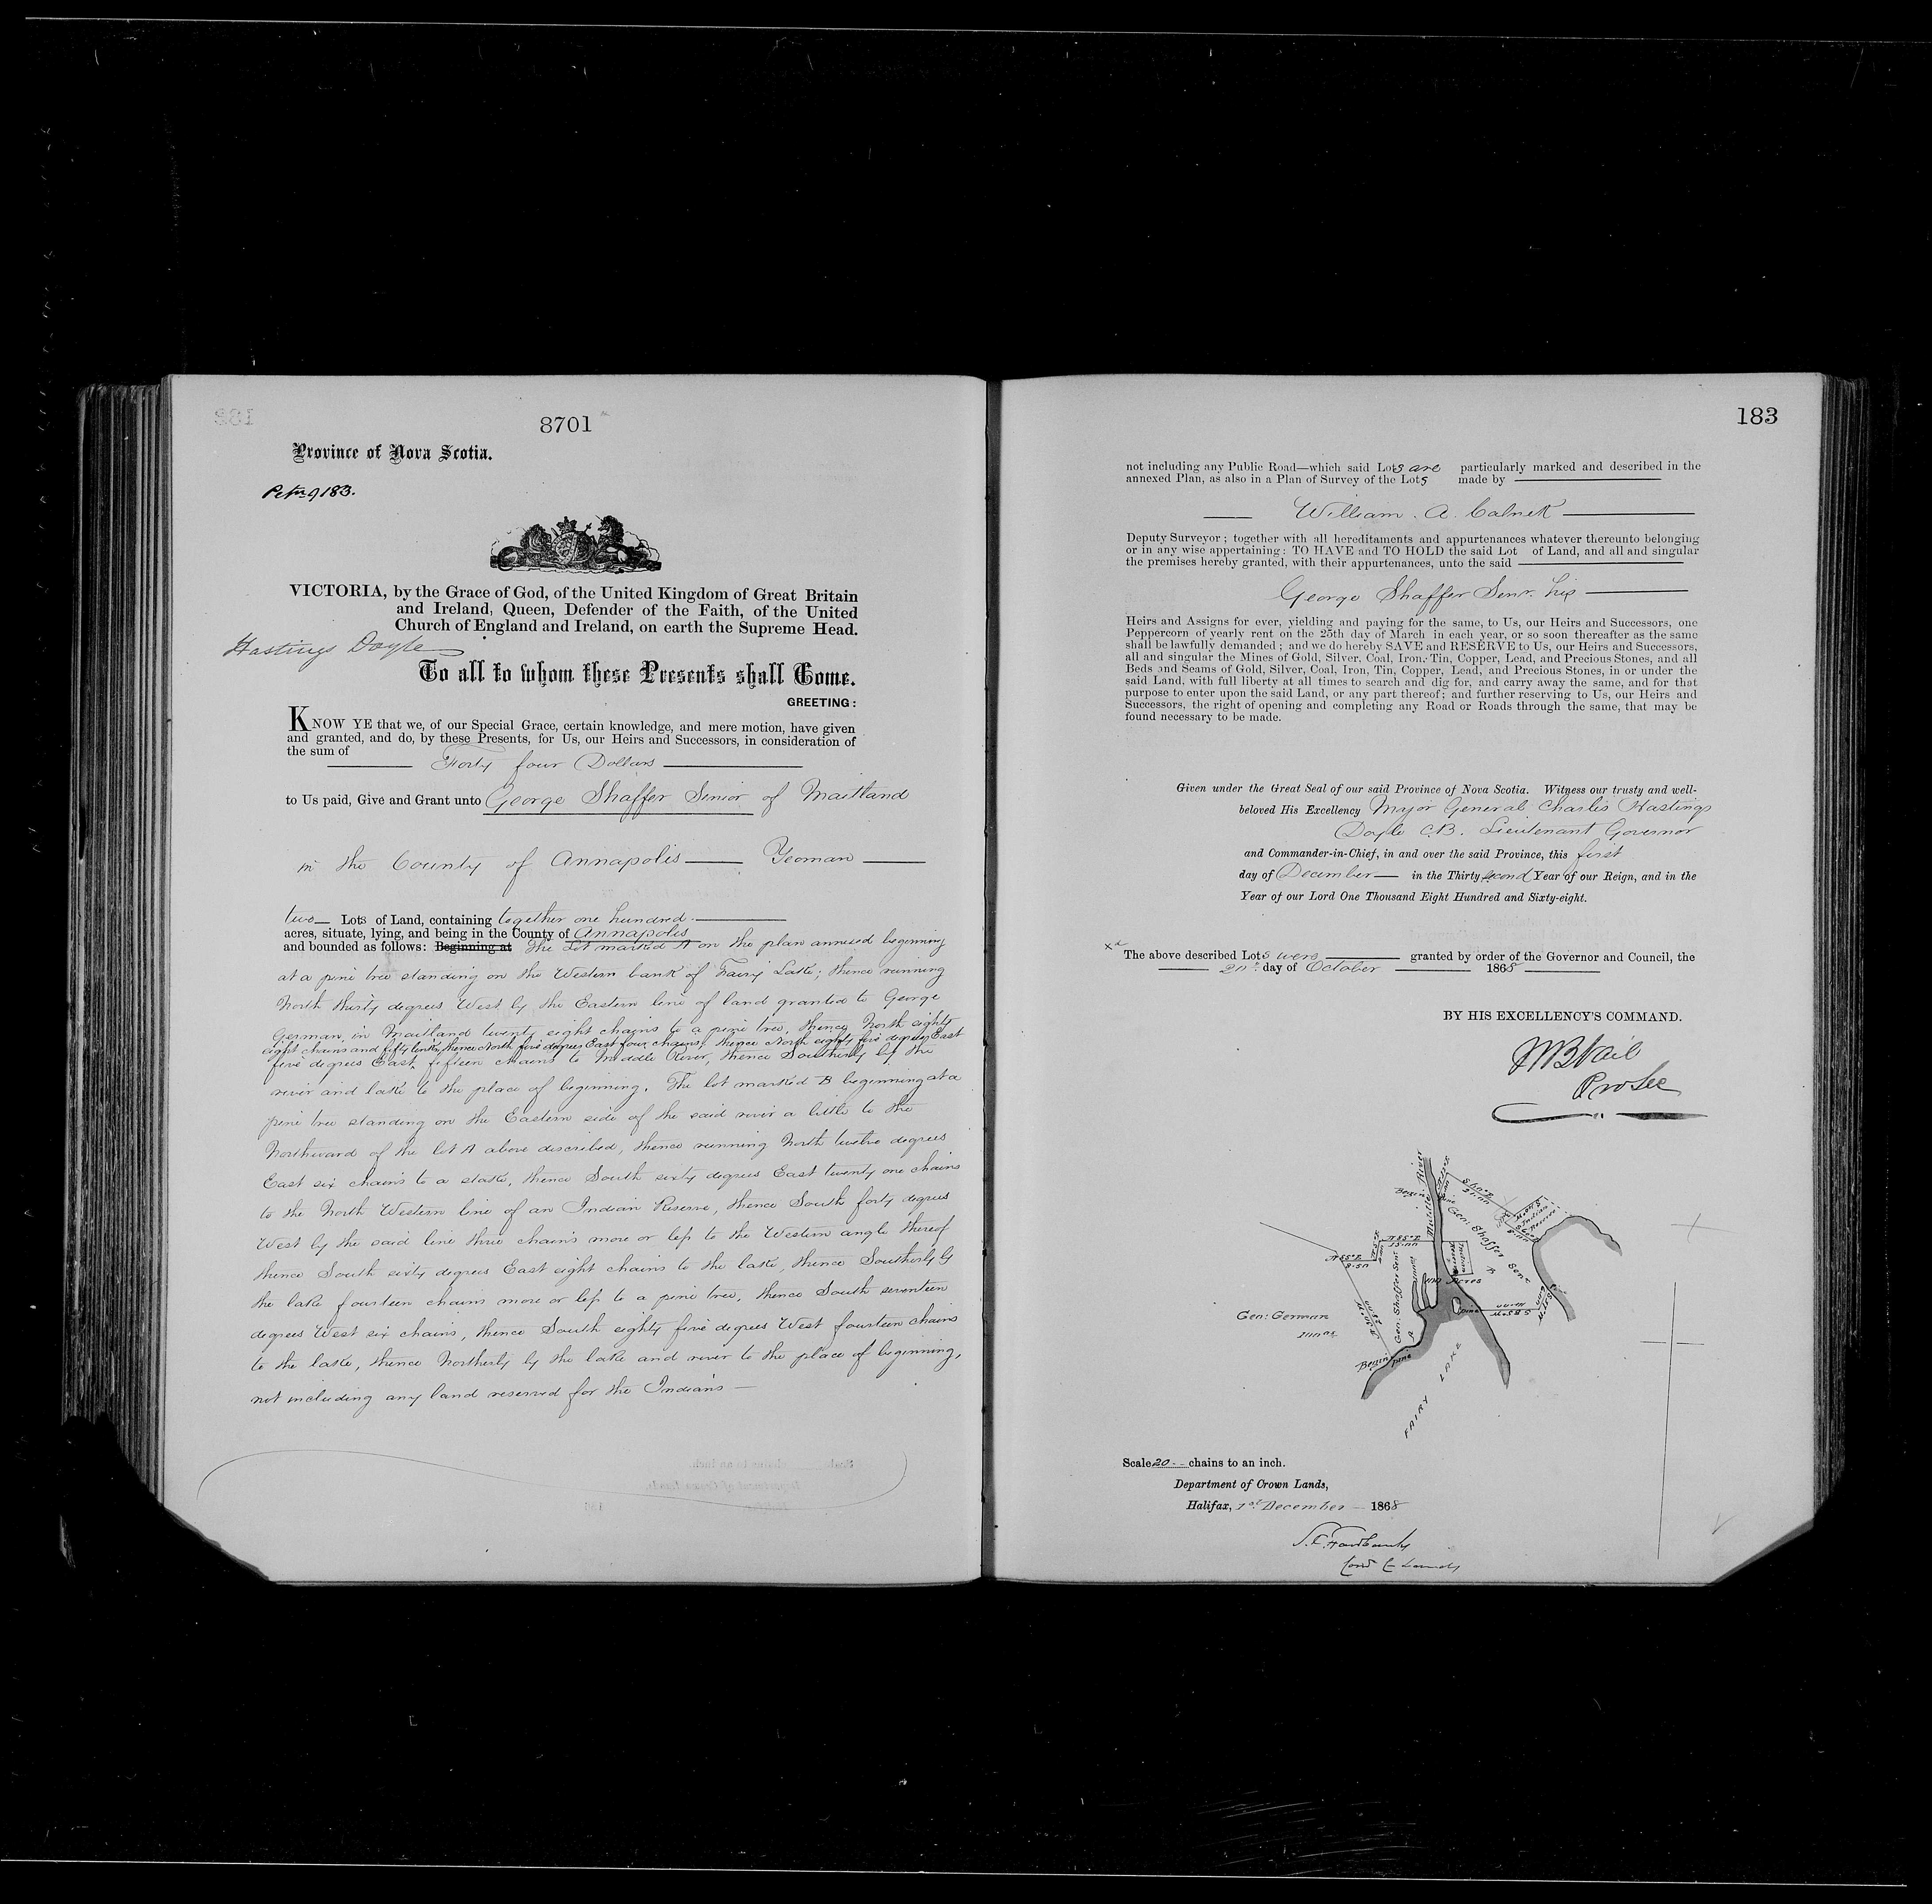 8701
Province of Nova Scotia.
Petn 9183.
VICTORIA, by the Grace of God, of the United Kingdom of Great Britain
and Ireland, Queen, Defender of the Faith, of the United
Church of England and Ireland, on earth the Supreme Head.
Hastings Doyle
To all to whom these Presents shall Come.
GREETING:
KNOW YE that we, of our Special Grace, certain knowledge, and mere motion, have given
and granted, and do, by these Presents, for Us, our Heirs and Successors, in consideration of
the sum of
Forty four Dollars
to Us paid, Give and Grant unto George Shaffer Senior of Maitland
in the County of Annapolis Yeoman
two Lots of Land, containing together one hundred
acres, situate, lying, and being in the County of Annapolis
and bounded as follows: Beginning at The Lot marked A on the plan annexed beginning
at a pine tree standing on the Western bank of Fairy Lake; thence running
North thirty degrees West by the Eastern line of land granted to George
German in Maitland twenty eight chains to a pine tree, thence North eighty
five degrees East eight chains and fifty links, thence North five degrees East four chains, thence North eighty five degrees East
fifteen chains to Middle River, thence Southerly by the
river and lake to the place of beginning. The lot marked B beginning at a
pine tree standing on the Eastern side of the said river a little to the
Northward of the lot A above described, thence running North twelve degrees
East six chains to a stake, thence South sixty degrees East twenty one chains
to the North Western line of an Indian Reserve, thence South forty degrees
West by the said line three chains more or less to the Western angle thereof
thence South sixty degrees East eight chains to the lake, thence Southerly by
the lake fourteen chains more or less to a pine tree, thence South seventeen
degrees West six chains, thence South eighty five degrees West fourteen chains
to the lake, thence Northerly by the lake and river to the place of beginning,
not including any land reserved for the Indians
183
not including any Public Road—which said Lots are particularly marked and described in the
annexed Plan, as also in a Plan of Survey of the Lots made by
William. A. Calnek
Deputy Surveyor; together with all hereditaments and appurtenances whatever thereunto belonging
or in any wise appertaining: TO HAVE and TO HOLD the said Lot of Land, and all and singular
the premises hereby granted, with their appurtenances, unto the said
George Shaffer Senr. his
Heirs and Assigns for ever, yielding and paying for the same, to Us, our Heirs and Successors, one
Peppercorn of yearly rent on the 25th day of March in each year, or so soon thereafter as the same
shall be lawfully demanded; and we do hereby SAVE and RESERVE to Us, our Heirs and Successors,
all and singular the Mines of Gold, Silver, Coal, Iron, Tin, Copper, Lead, and Precious Stones, and all
Beds and Seams of Gold, Silver, Coal, Iron, Tin, Copper, Lead, and Precious Stones, in or under the
said Land, with full liberty at all times to search and dig for, and carry away the same, and for that
purpose to enter upon the said Land, or any part thereof; and further reserving to Us, our Heirs and
Successors, the right of opening and completing any Road or Roads through the same, that may be
found necessary to be made.
Given under the Great Seal of our said Province of Nova Scotia. Witness our trusty and well-
beloved His Excellency Major General Charles Hastings
Doyle C.B. Lieutenant Governor
and Commander-in-Chief, in and over the said Province, this first
day of December in the Thirty second Year of our Reign, and in the
Year of our Lord One Thousand Eight Hundred and Sixty-eight.
The above described Lots were granted by order of the Governor and Council, the
day of October 1868
BY HIS EXCELLENCY'S COMMAND.
W B Vail
Pro Sec
Middle River
Begin
pine
S 60° E
21.00
Geo: Shaffer Senr
B
Indian Reserve
N 85° E
15.00
N 85° E
8.50
Geo: Shaffer Senr
A
100 Acres
pine
Geo: German
Begin
pine
FAIRY LAKE
Scale 20 chains to an inch.
Department of Crown Lands,
Halifax, 1st December 1868
S. P. Fairbanks
Com C Lands